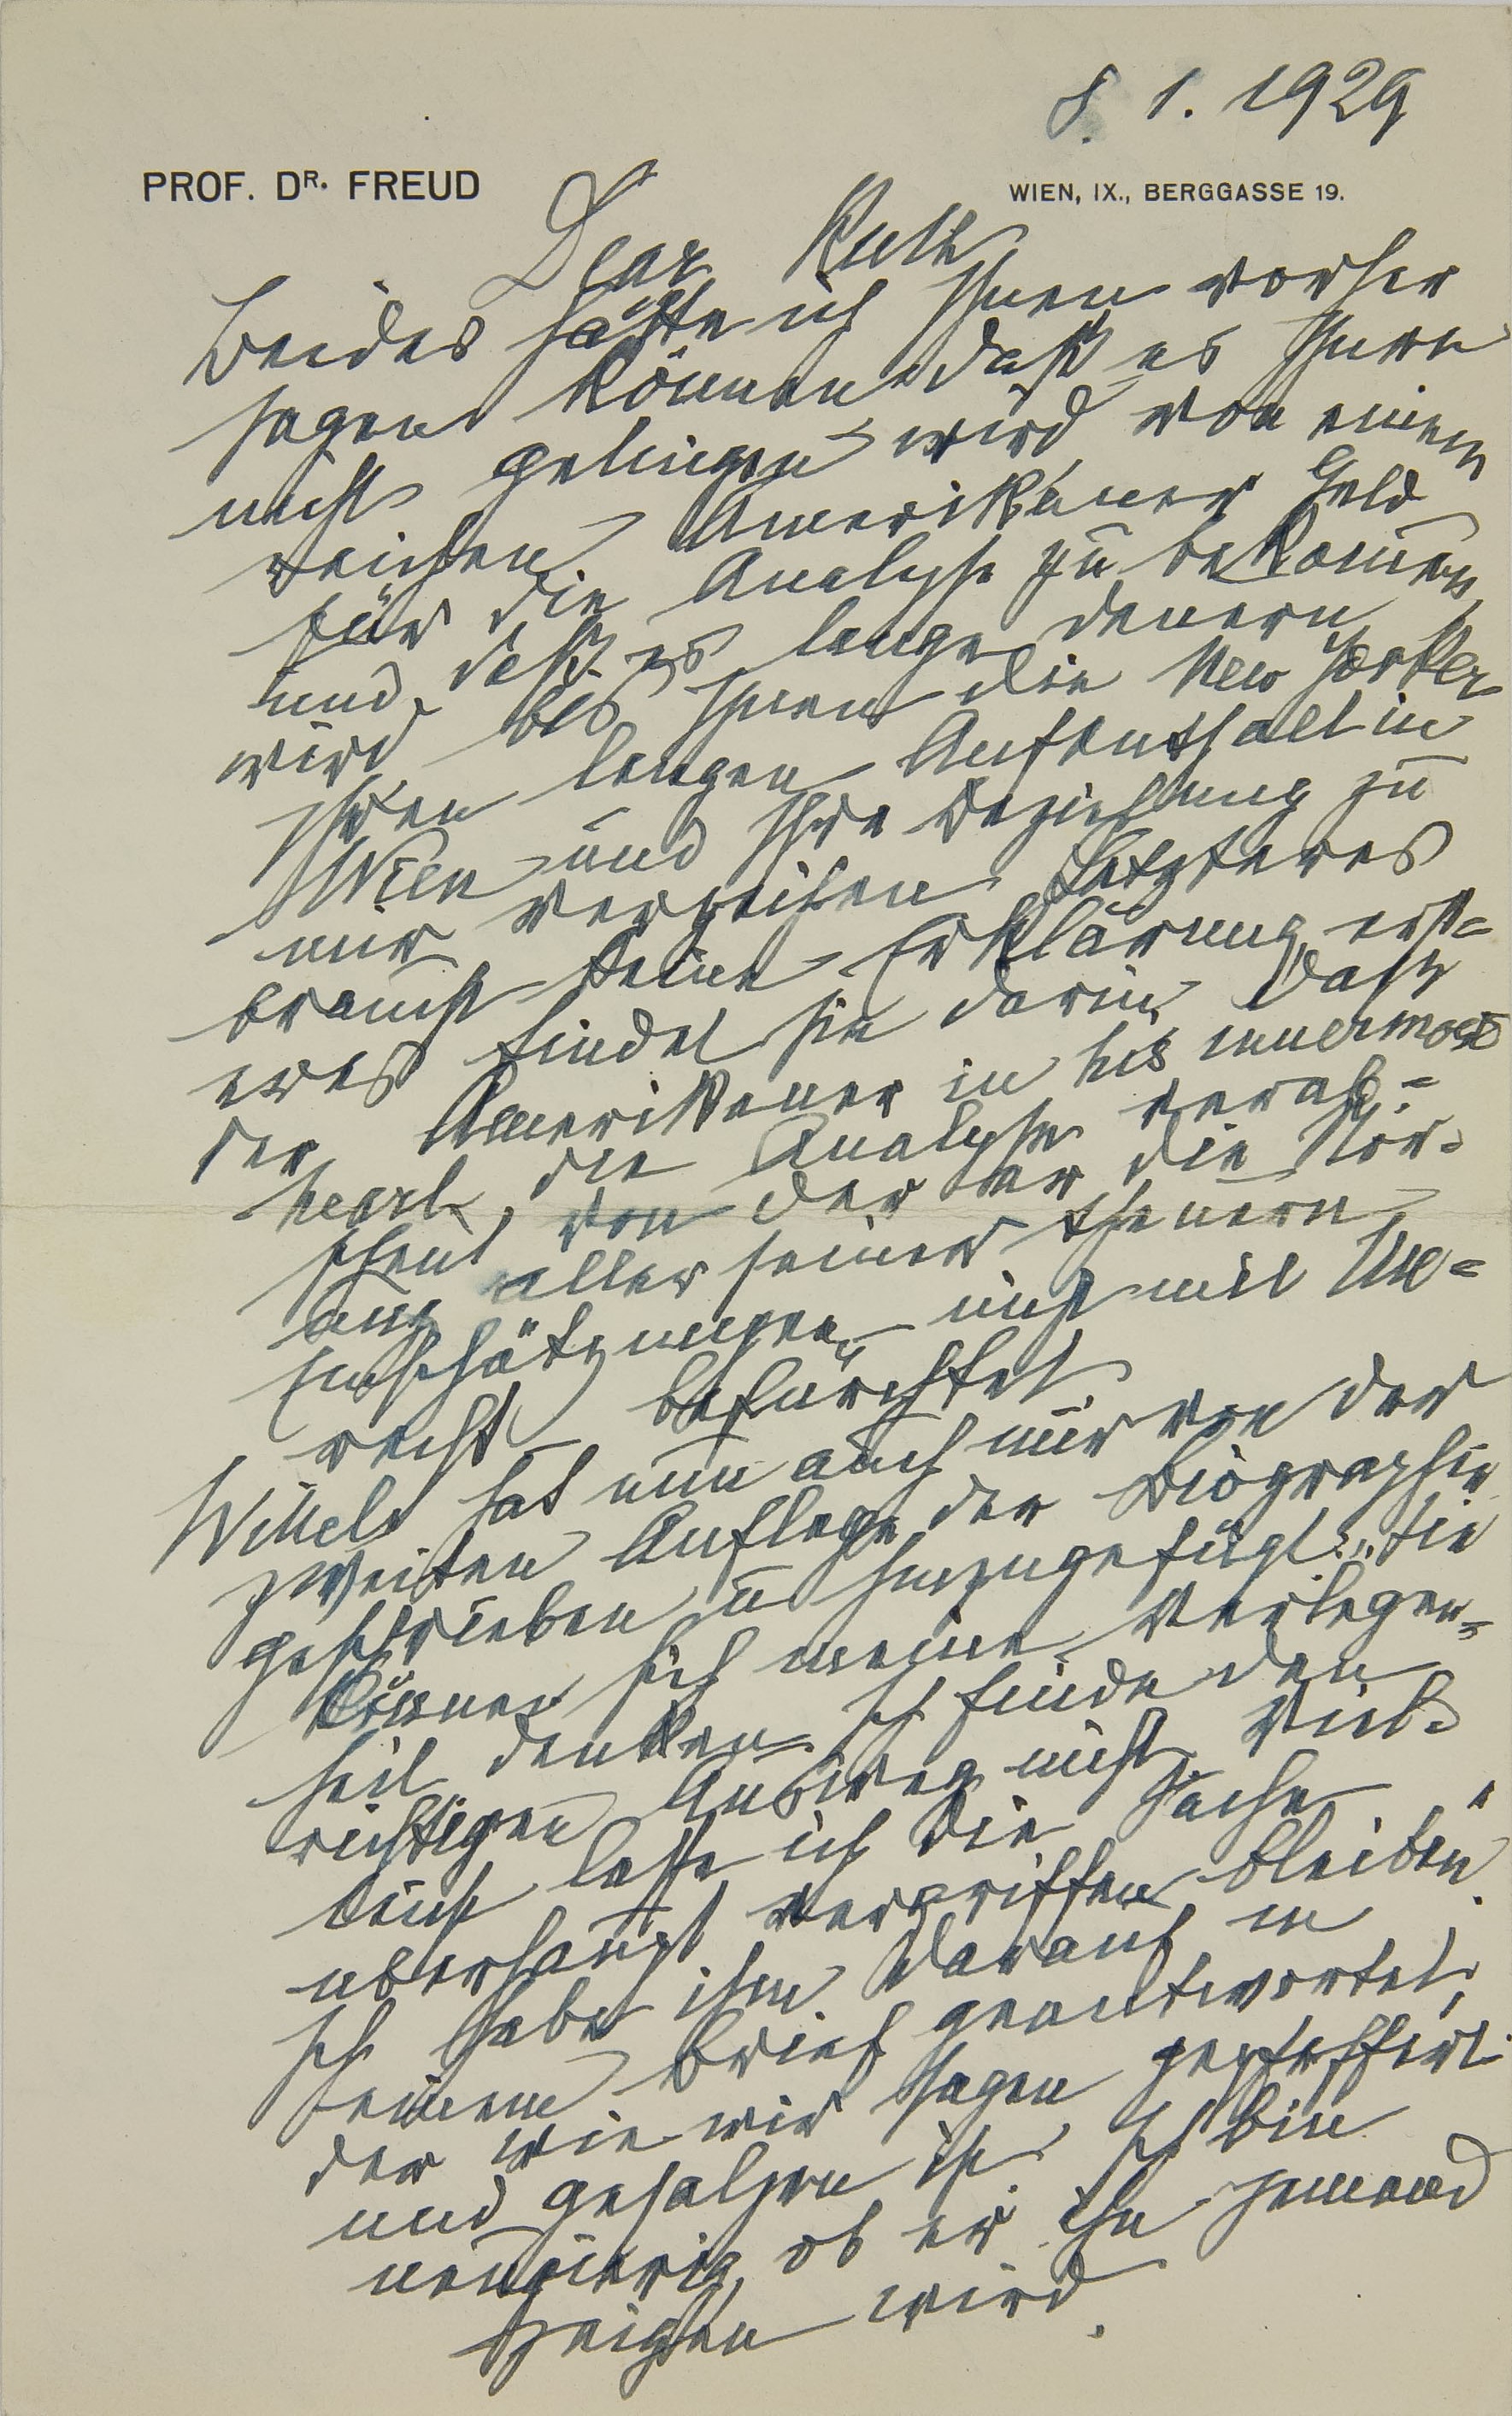 8. 1. 1929
PROF. DR. FREUD
WIEN, IX., BERGGASSE 19.
Dear Ruth
Beides hätte ich Ihnen vorher
sagen können daß es Ihnen
nicht gelingen wird von einem
reichen Amerikaner Geld
für die Analyse zu bekommen,
und daß es lange dauern
wird bis Ihnen die New Yorker
Ihren langen Aufenthalt in
Wien und Ihre Beziehung zu
mir verzeihen. Letzteres
braucht keine Erklärung, erst=
eres findet sie darin, daß
der Amerikaner in his innermost
heart die Analyse verab=
scheut, von der er die Stör=
ung aller seiner theuern
Einschätzungen nicht mit Un=
recht befürchtet.
Wittels hat nun auch mir von der
zweiten Auflage der Biographie
geschrieben u hinzugefügt: „Sie
können sich meine Verlegen=
heit denken. Ich finde den
richtigen Ausweg nicht. Viel=
leicht lasse ich die Sache
überhaupt vergriffen bleiben".
Ich habe ihm darauf in
einem Brief geantwortet,
der wie wir sagen gepfeffert
und gesalzen ist. Ich bin
neugierig, ob er ihn jemand
zeigen wird.